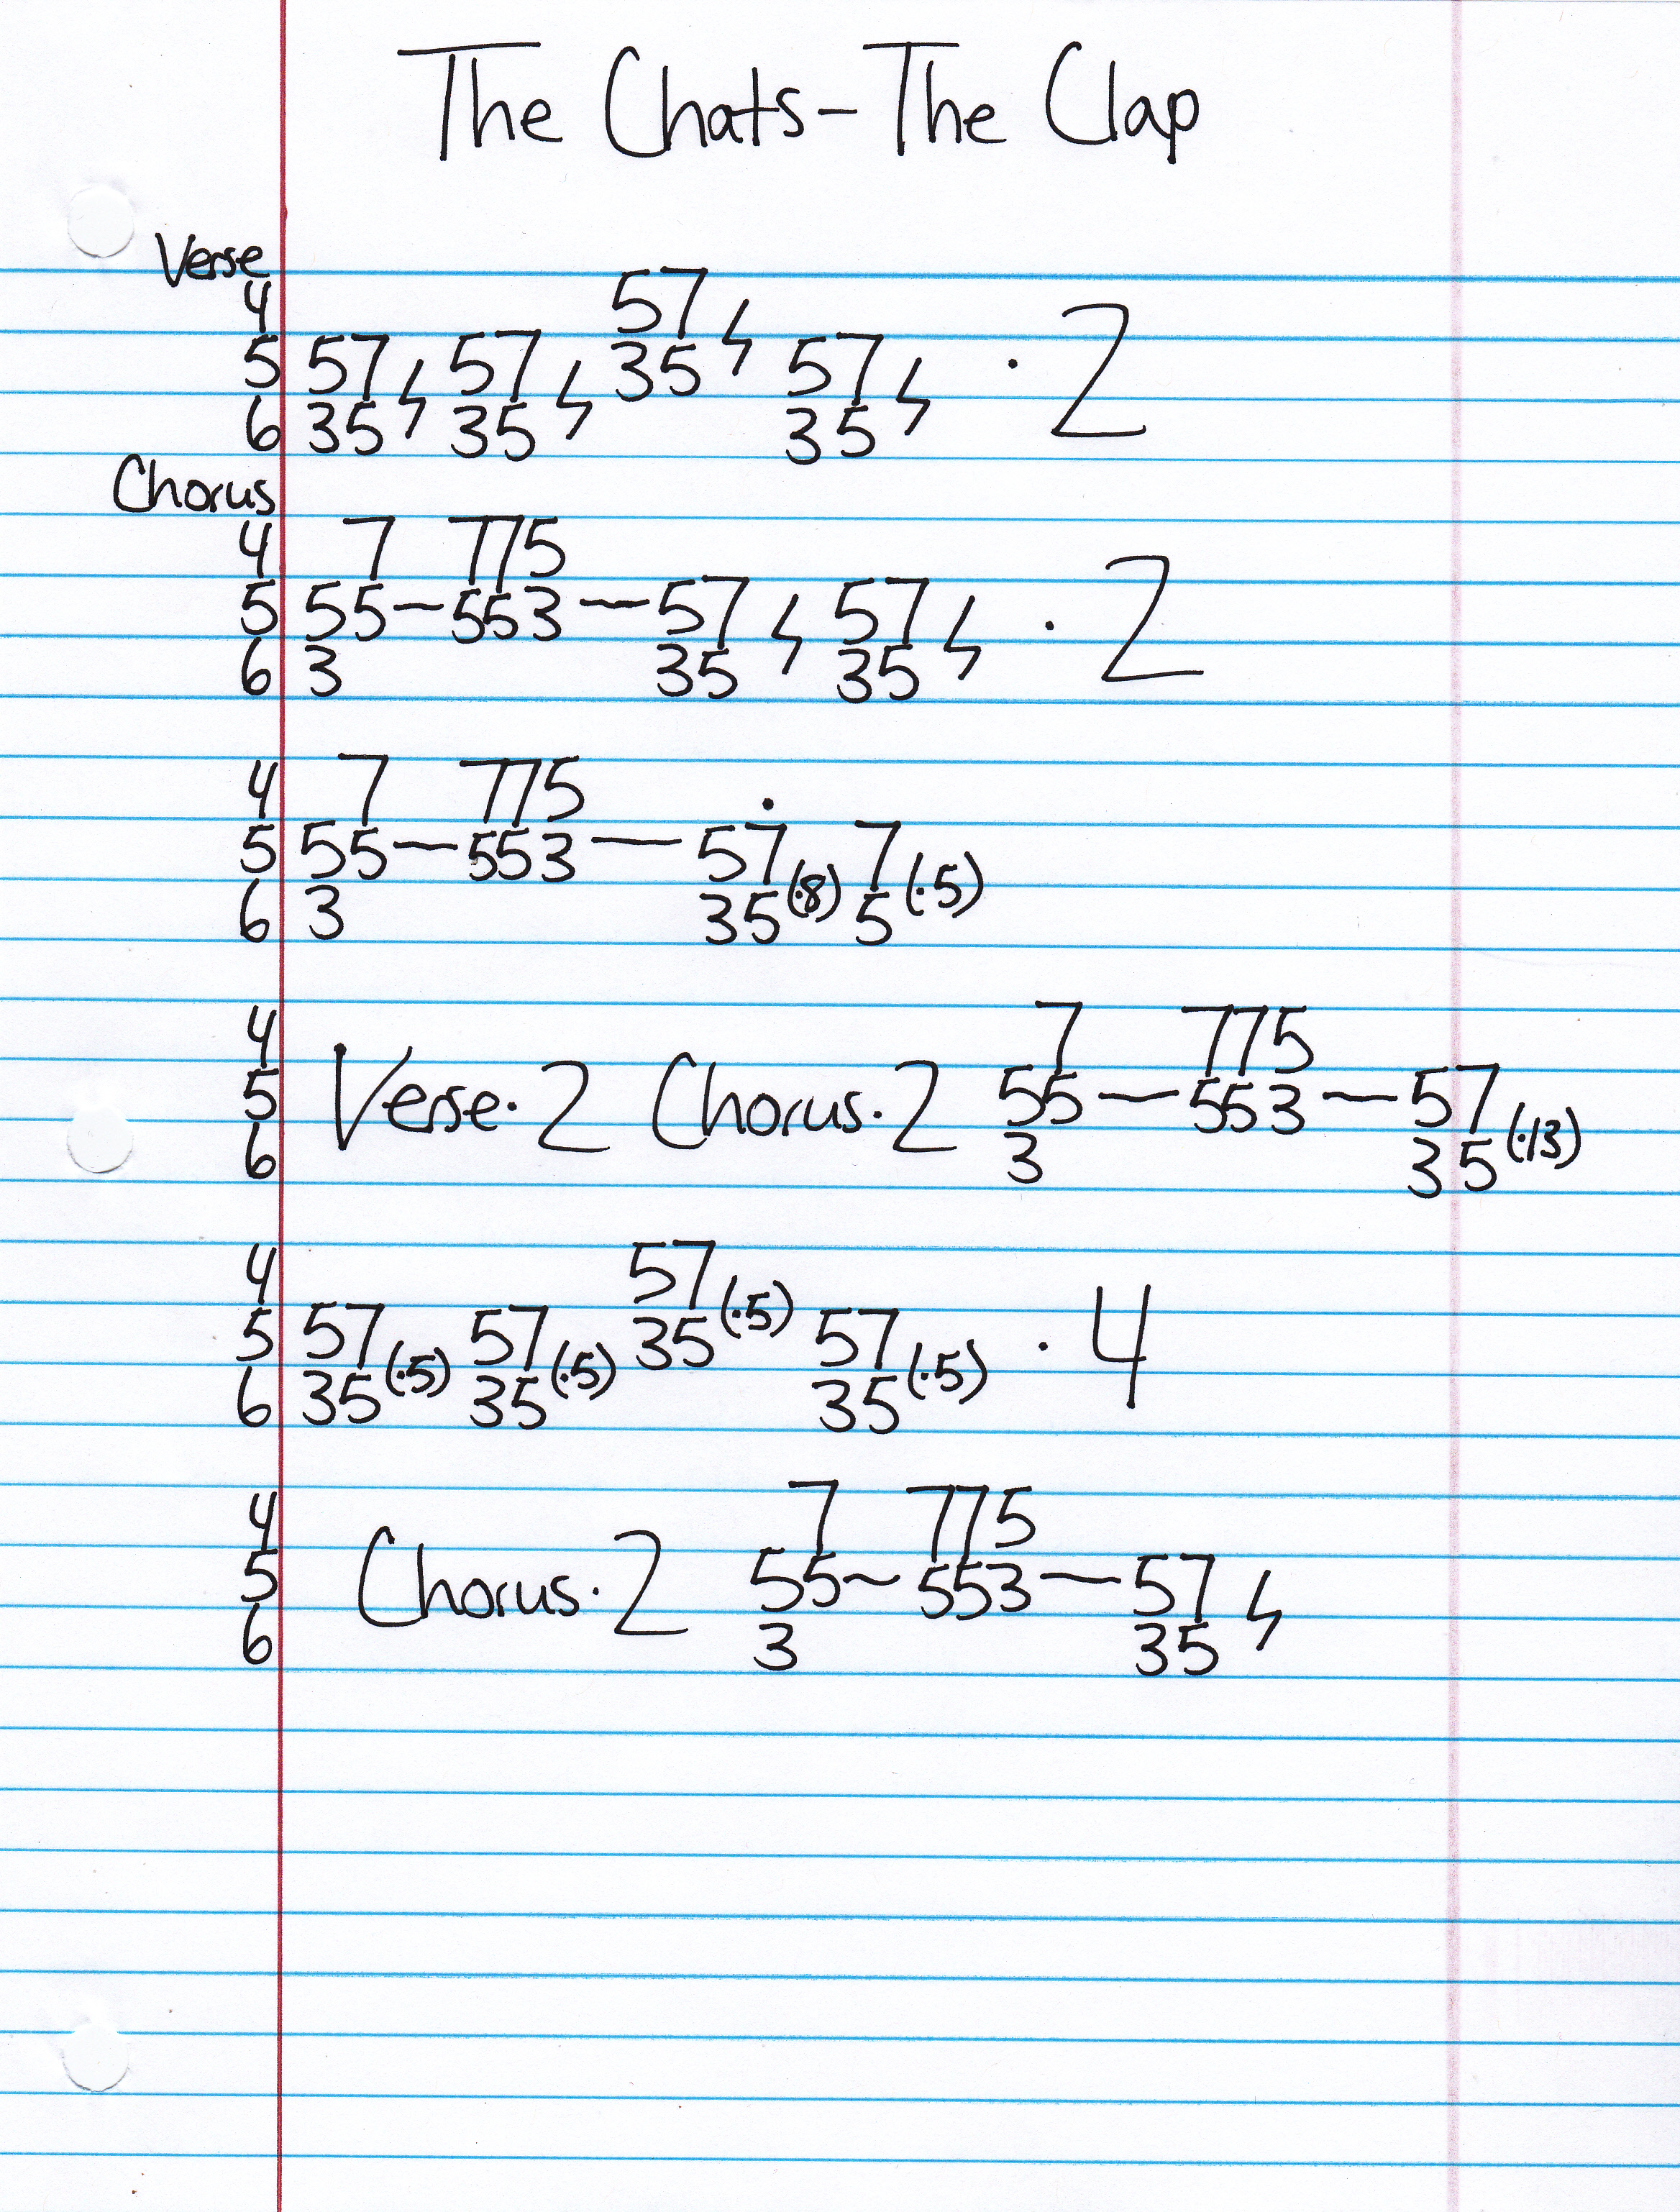 The Chats - The Clap
Verse
4 57 ϟ
5 57 ϟ 57 ϟ 35 57 ϟ · 2
6 35 35 35
Chorus
4 7 775
5 55 – 553 – 57 ϟ 57 ϟ · 2
6 3 35 35
4 7 775 ·
5 55 – 553 – 57 7
6 3 35 (·8) 5 (·5)
4 7 775
5 Verse · 2 Chorus · 2 55 – 553 – 57
6 3 35 (·13)
4 57
5 57 57 35 (·5) 57 · 4
6 35 (·5) 35 (·5) 35 (·5)
4 7 775
5 Chorus · 2 55 ~ 553 – 57 ϟ
6 3 35